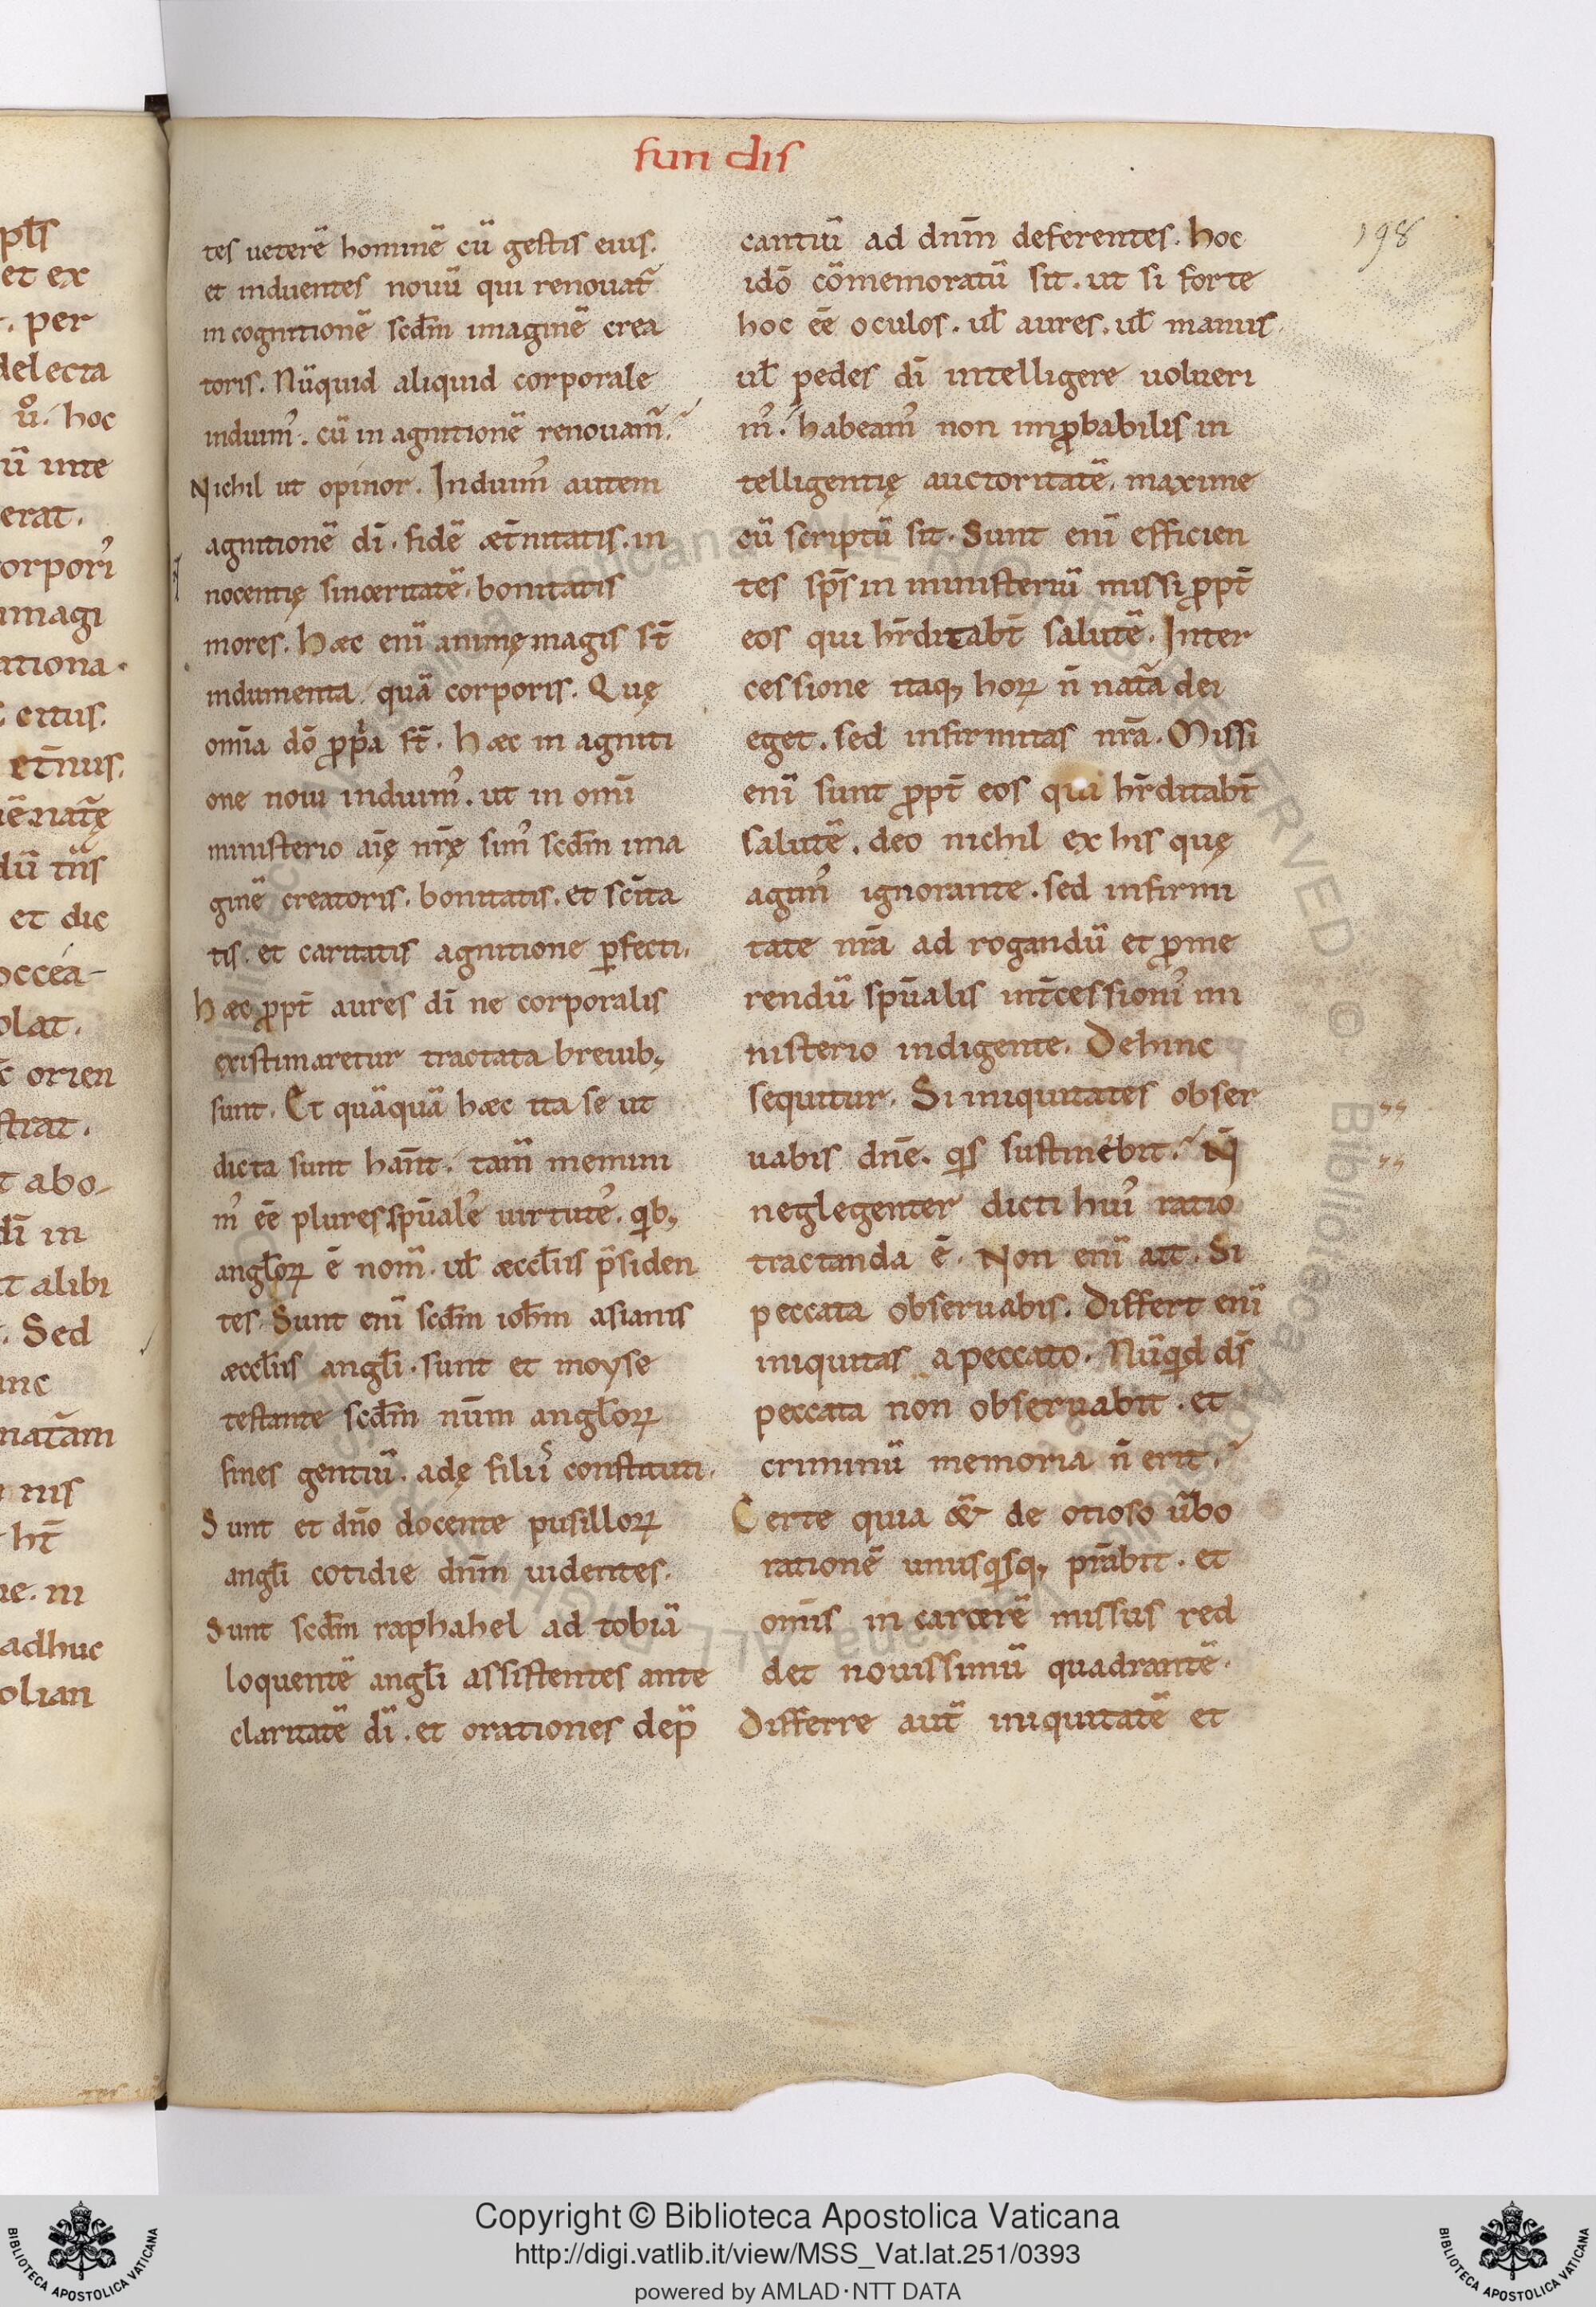 fun dis
198
tes ueterē hominē cū gestis eius.
et induentes nouū qui renouat̄
in cognitionē scdm̄ imaginē crea
toris. Nūquid aliquid corporale
induim᾽. cū in agnitionē renouam̄.
Nichil ut opinor. Induim᾽ autem
agnitionē dī. fidē æt̄nitatis. in
nocentię sinceritatē. bonitatis
mores. Hæc enī animę magis st̄
indumenta quā corporis. Quę
omīa dō ꝓpͥa st̄. Hæc in agniti
one noui induim᾽. ut in omī
ministerio aīę nr̄ę sim᾽ scdm̄ ima
ginē creatoris. bonitatis. et scīta
tis. et caritatis agnitione ꝑfecti.
Hæc ꝓpt̄ aures dī ne corporalis
existimaretur tractata breuib;
sunt. Et quāquā hæc ita se ut
dicta sunt han̄t. tam̄ memini
m᾽ eē plures spūale᾽ uirtute᾽. qib;
angl̄oꝝ ē nom̄. ul̄ æccl̄iis p̄siden
tes. Sunt enī scdm̄ ioh̄m asianis
æccl̄iis angl̄i. sunt et moyse
testante scdm̄ nūm angl̄oꝝ
fines gentiū. adę filii᾽ constituti.
Sunt et dn̄o docente pusilloꝝ
angl̄i cotidie dn̄m uidentes.
Sunt scdm̄ raphahel ad tobiā
loquentē angl̄i assistentes ante
claritatē dī. et orationes dep̄
cantiū ad dnm̄ deferentes. Hoc
idō cōmemoratū sit. ut si forte
hoc eē oculos. ul̄ aures. ul̄ manus
ul̄ pedes dī intelligere uolueri
m᾽. habeam᾽ non imꝓbabilis in
telligentię auctoritatē. maxime
cū scriptū sit. Sunt enī efficien
tes sp̄s in ministeriū missi ꝓpt̄
eos qui hr̄ditabt̄ salutē. Inter
cessione itaq; hoꝝ n̄ nat̄a dei
eget. sed infirmitas nr̄a. Missi
enī sunt ꝓpt̄ eos qui hr̄ditabt̄
salutē. deo nichil ex his quę
agim᾽ ignorante. sed infirmi
tate nr̄a ad rogandū et ꝓme
rendū spūalis int̄cessioni᾽ mi
nisterio indigente. Dehinc
sequitur. Si iniquitates obser
uabis dn̄e. qis sustinebit. N̄
neglegenter dicti hui᾽ ratio
tractanda ē. Non enī ait. Si
peccata obseruabis. Differt enī
iniquitas a peccato. Nūqid ds̄
peccata non obseruabit. et
criminū memoria n̄ erit.
Certe quia & de otioso ūbo
rationē unusqisq; p̄stabit. et
omīs in carcerē missus red
det nouissimū quadrantē.
Differre aut̄ iniquitatē et
pl̄s
et ex
. per
delecta
u̇̄. hoc
ū inte
erat.
corpori᾽
imagi
ationa
citus.
et̄nus.
dū tn̄s
et dic
occea-
olat.
orien
strat.
abo-
dī in
alibi
. Sed
nat̄am
nis
ht̄
ue. ni
adhuc
olian
Copyright © Biblioteca Apostolica Vaticana
http://digi.vatlib.it/view/MSS_Vat.lat.251/0393
powered by AMLAD·NTT DATA
BIBLIOTECA APOSTOLICA VATICANA
BIBLIOTECA APOSTOLICA VATICANA